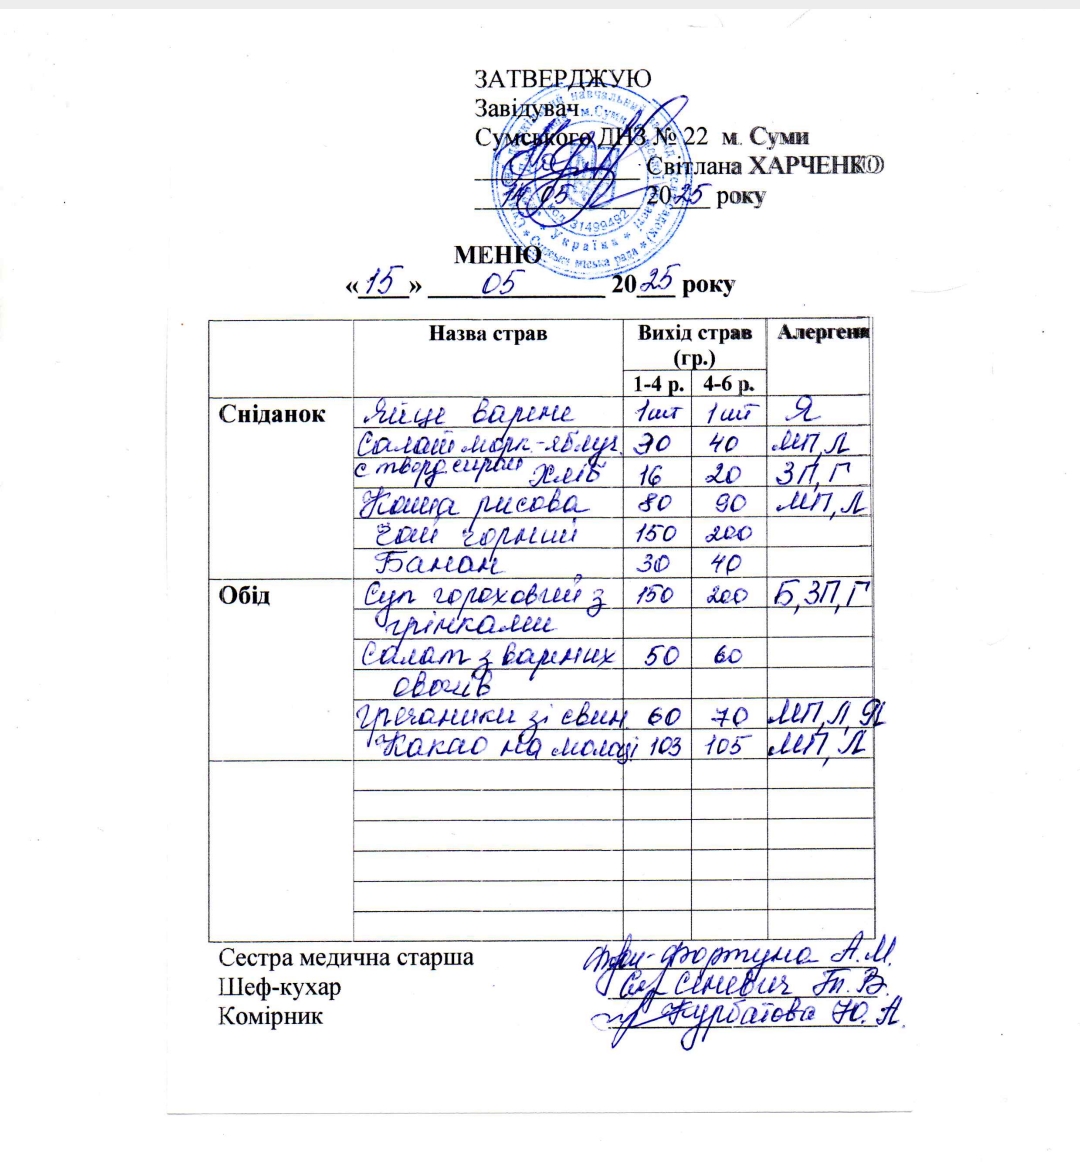 ЗАТВЕРДЖУЮ
Завідувач
Сумського ДНЗ № 22 м. Суми
Світлана ХАРЧЕНКО
14 05 2025 року
код 31499492
Україна
Сумська міська рада
МЕНЮ
«15» 05 2025 року
Назва страв Вихід страв (гр.) Алергени
1-4 р. 4-6 р.
Сніданок Яйце варене 1шт 1шт Я
Салат морк.-яблуч. 30 40 МП,Л
с тверд.сиром Хліб 16 20 ЗП,Г
Каша рисова 80 90 МП,Л
Чай чорний 150 200
Банан 30 40
Обід Суп гороховий з 150 200 Б,ЗП,Г
грінками
Салат з варених 50 60
овочів
Гречаники зі свин. 60 70 МП,Л,Я
Какао на молоці 103 105 МП,Л
Сестра медична старша Фортуна А.М.
Шеф-кухар Сіневич Т.В.
Комірник Курбатова Ю.А.